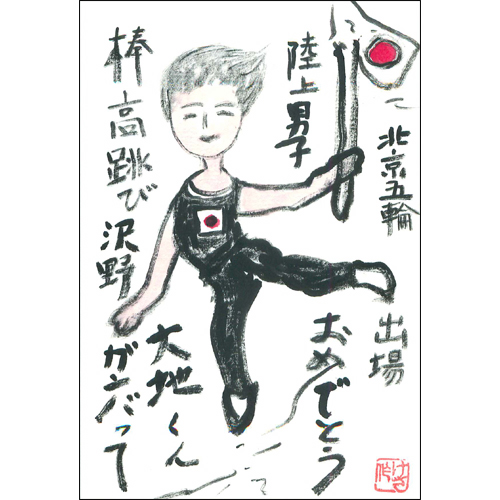 北京五輪
出場
おめでとう
陸上男子
棒高跳び
沢野
大地くん
ガンバって